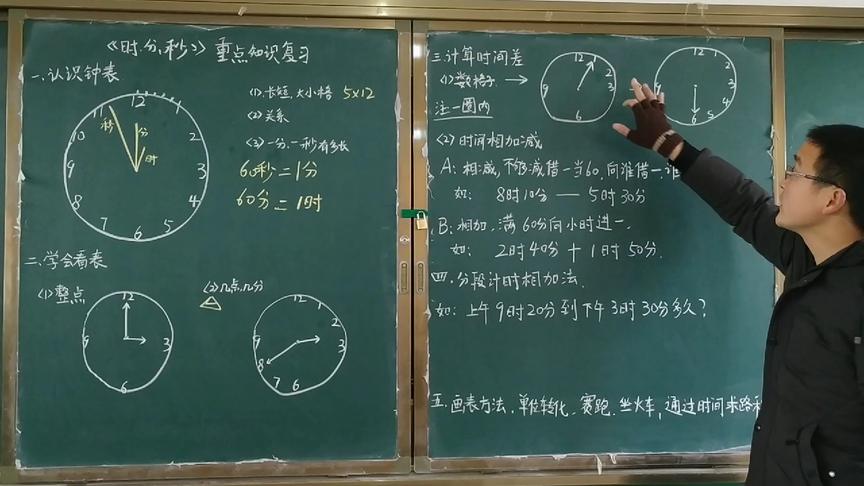 《时.分.秒》重点知识复习
一.认识钟表
(1).长短.大小格 5×12
(2).关系
(3)一分.一秒有多长
60秒=1分
60分=1时
12
11
1
10
2
9
3
8
4
7
5
6
秒
分
时
二.学会看表
(1)整点
12
9
3
6
(2)几点.几分
12
1
2
9
3
8
7
6
三.计算时间差
(1)数格子
注一圈内
12
1
2
9
3
6
12
1
2
9
3
4
5
6
(2)时间相加减
A:相减,不够减借一当60,向谁借一,谁
如: 8时10分 — 5时30分
B:相加,满60分向小时进一.
如: 2时40分 + 1时50分.
四.分段计时相加法.
如:上午9时20分到下午3时30分多久?
五.画表方法.单位转化.赛跑.坐火车,通过时间求路